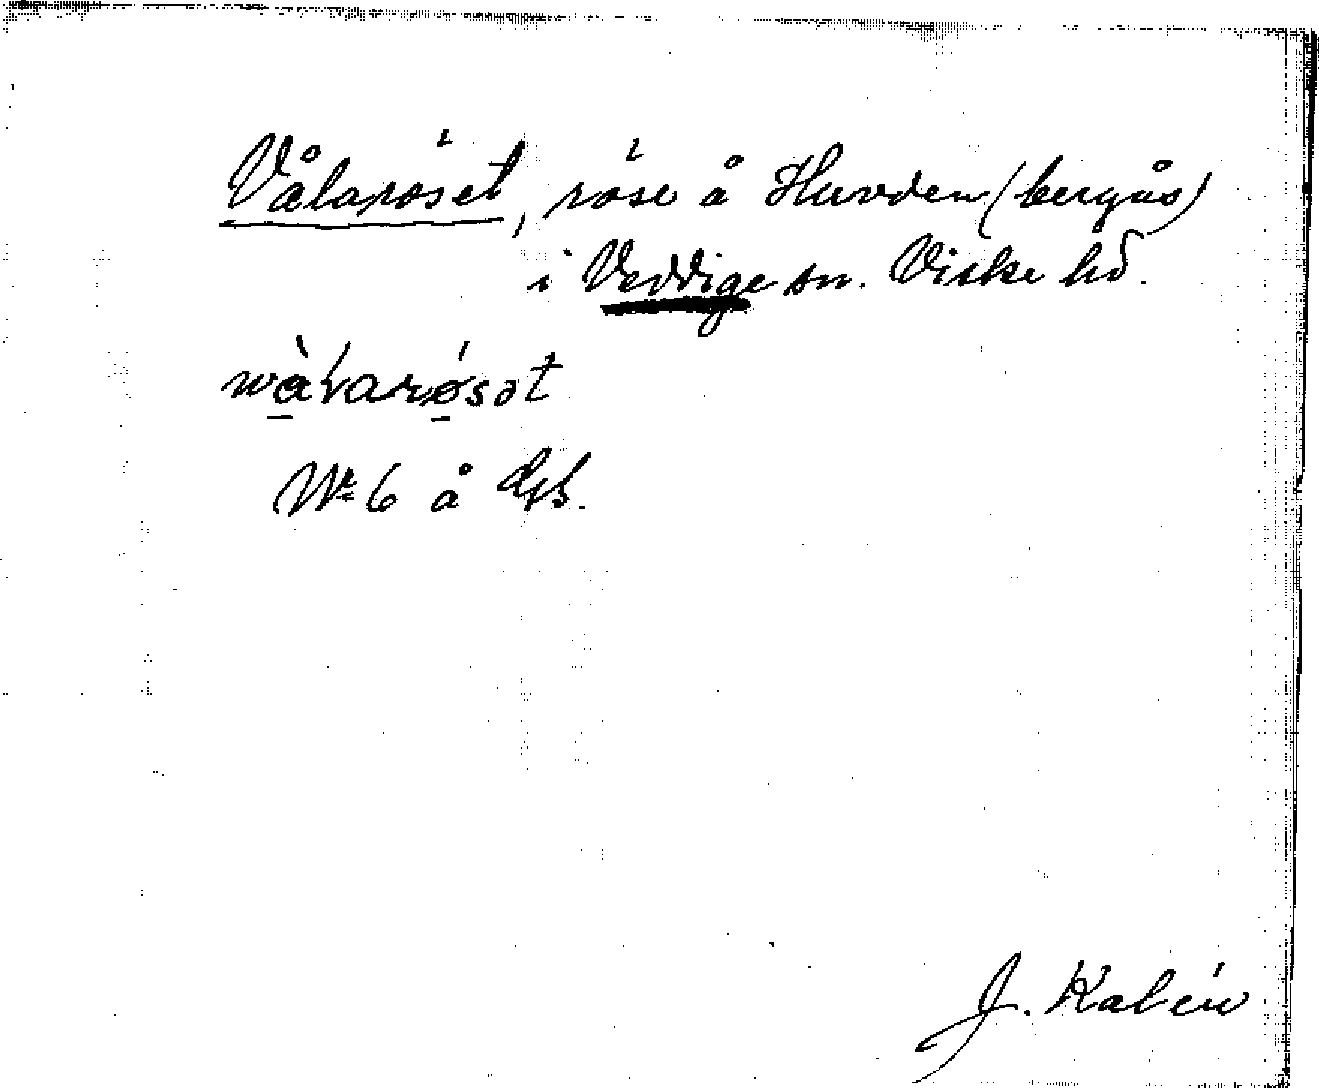 Vålaröset, röse å Huvden (bergås)
i Veddige sn. Viske hd.
wàɫarǿsət
Nr 6 å
J. Kalén